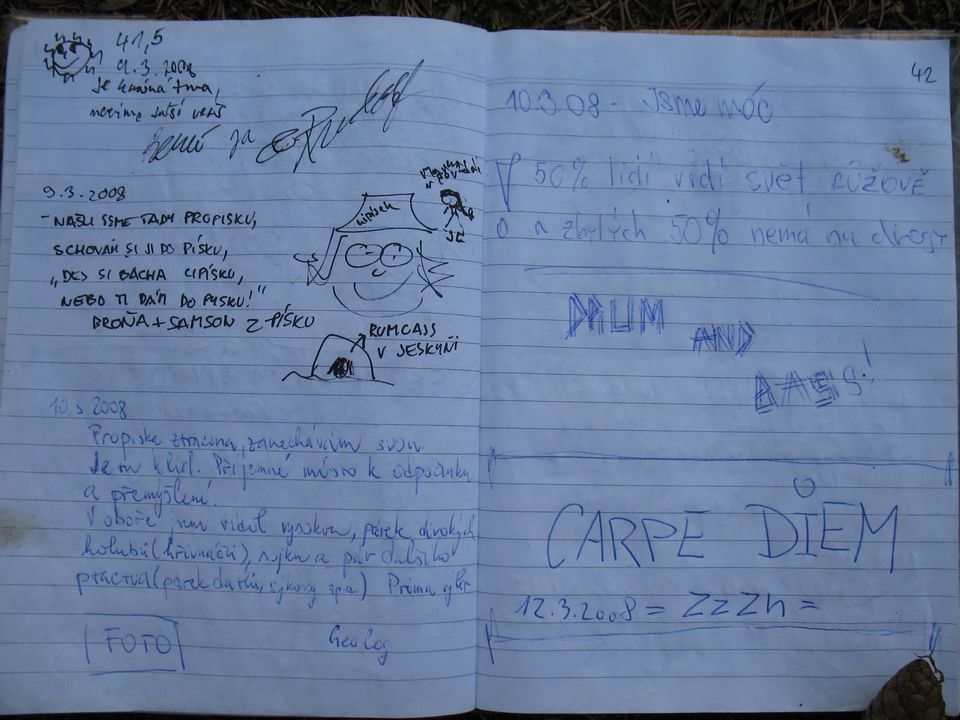 41,5
9.3.2008
Je krásná tma,
nevíme další verš
9.3.2008
- NAŠLI JSME TADY PROPISKU,
SCHOVAM SI JI DO PÍSKU,
„DEJ SI BACHA CIPÍSKU,
NEBO TI DÁM DO PYSKU!"
BROŇA + SAMSON Z PÍSKU
RUMCAJS
V JESKYŇI
10 3 2008
Propiska ztracena, zanechávám svou
Je tu klid. Příjemné místo k odpočinku
a přemýšlení.
V oboře jsem viděl vysokou, párek divokých
holubů (hřivnáčů), sojku a pár dalšího
ptactva (párek datlů, sýkory apa.) Prima výlet
FOTO
Geolog
42
10.3.08 - Jsme móc
50% lidí vidí svět růžově
a zbylých 50% nemá na drogy
DRUM
AND
BASS!
CARPE DIEM
12.3.2008 = ZzZh =